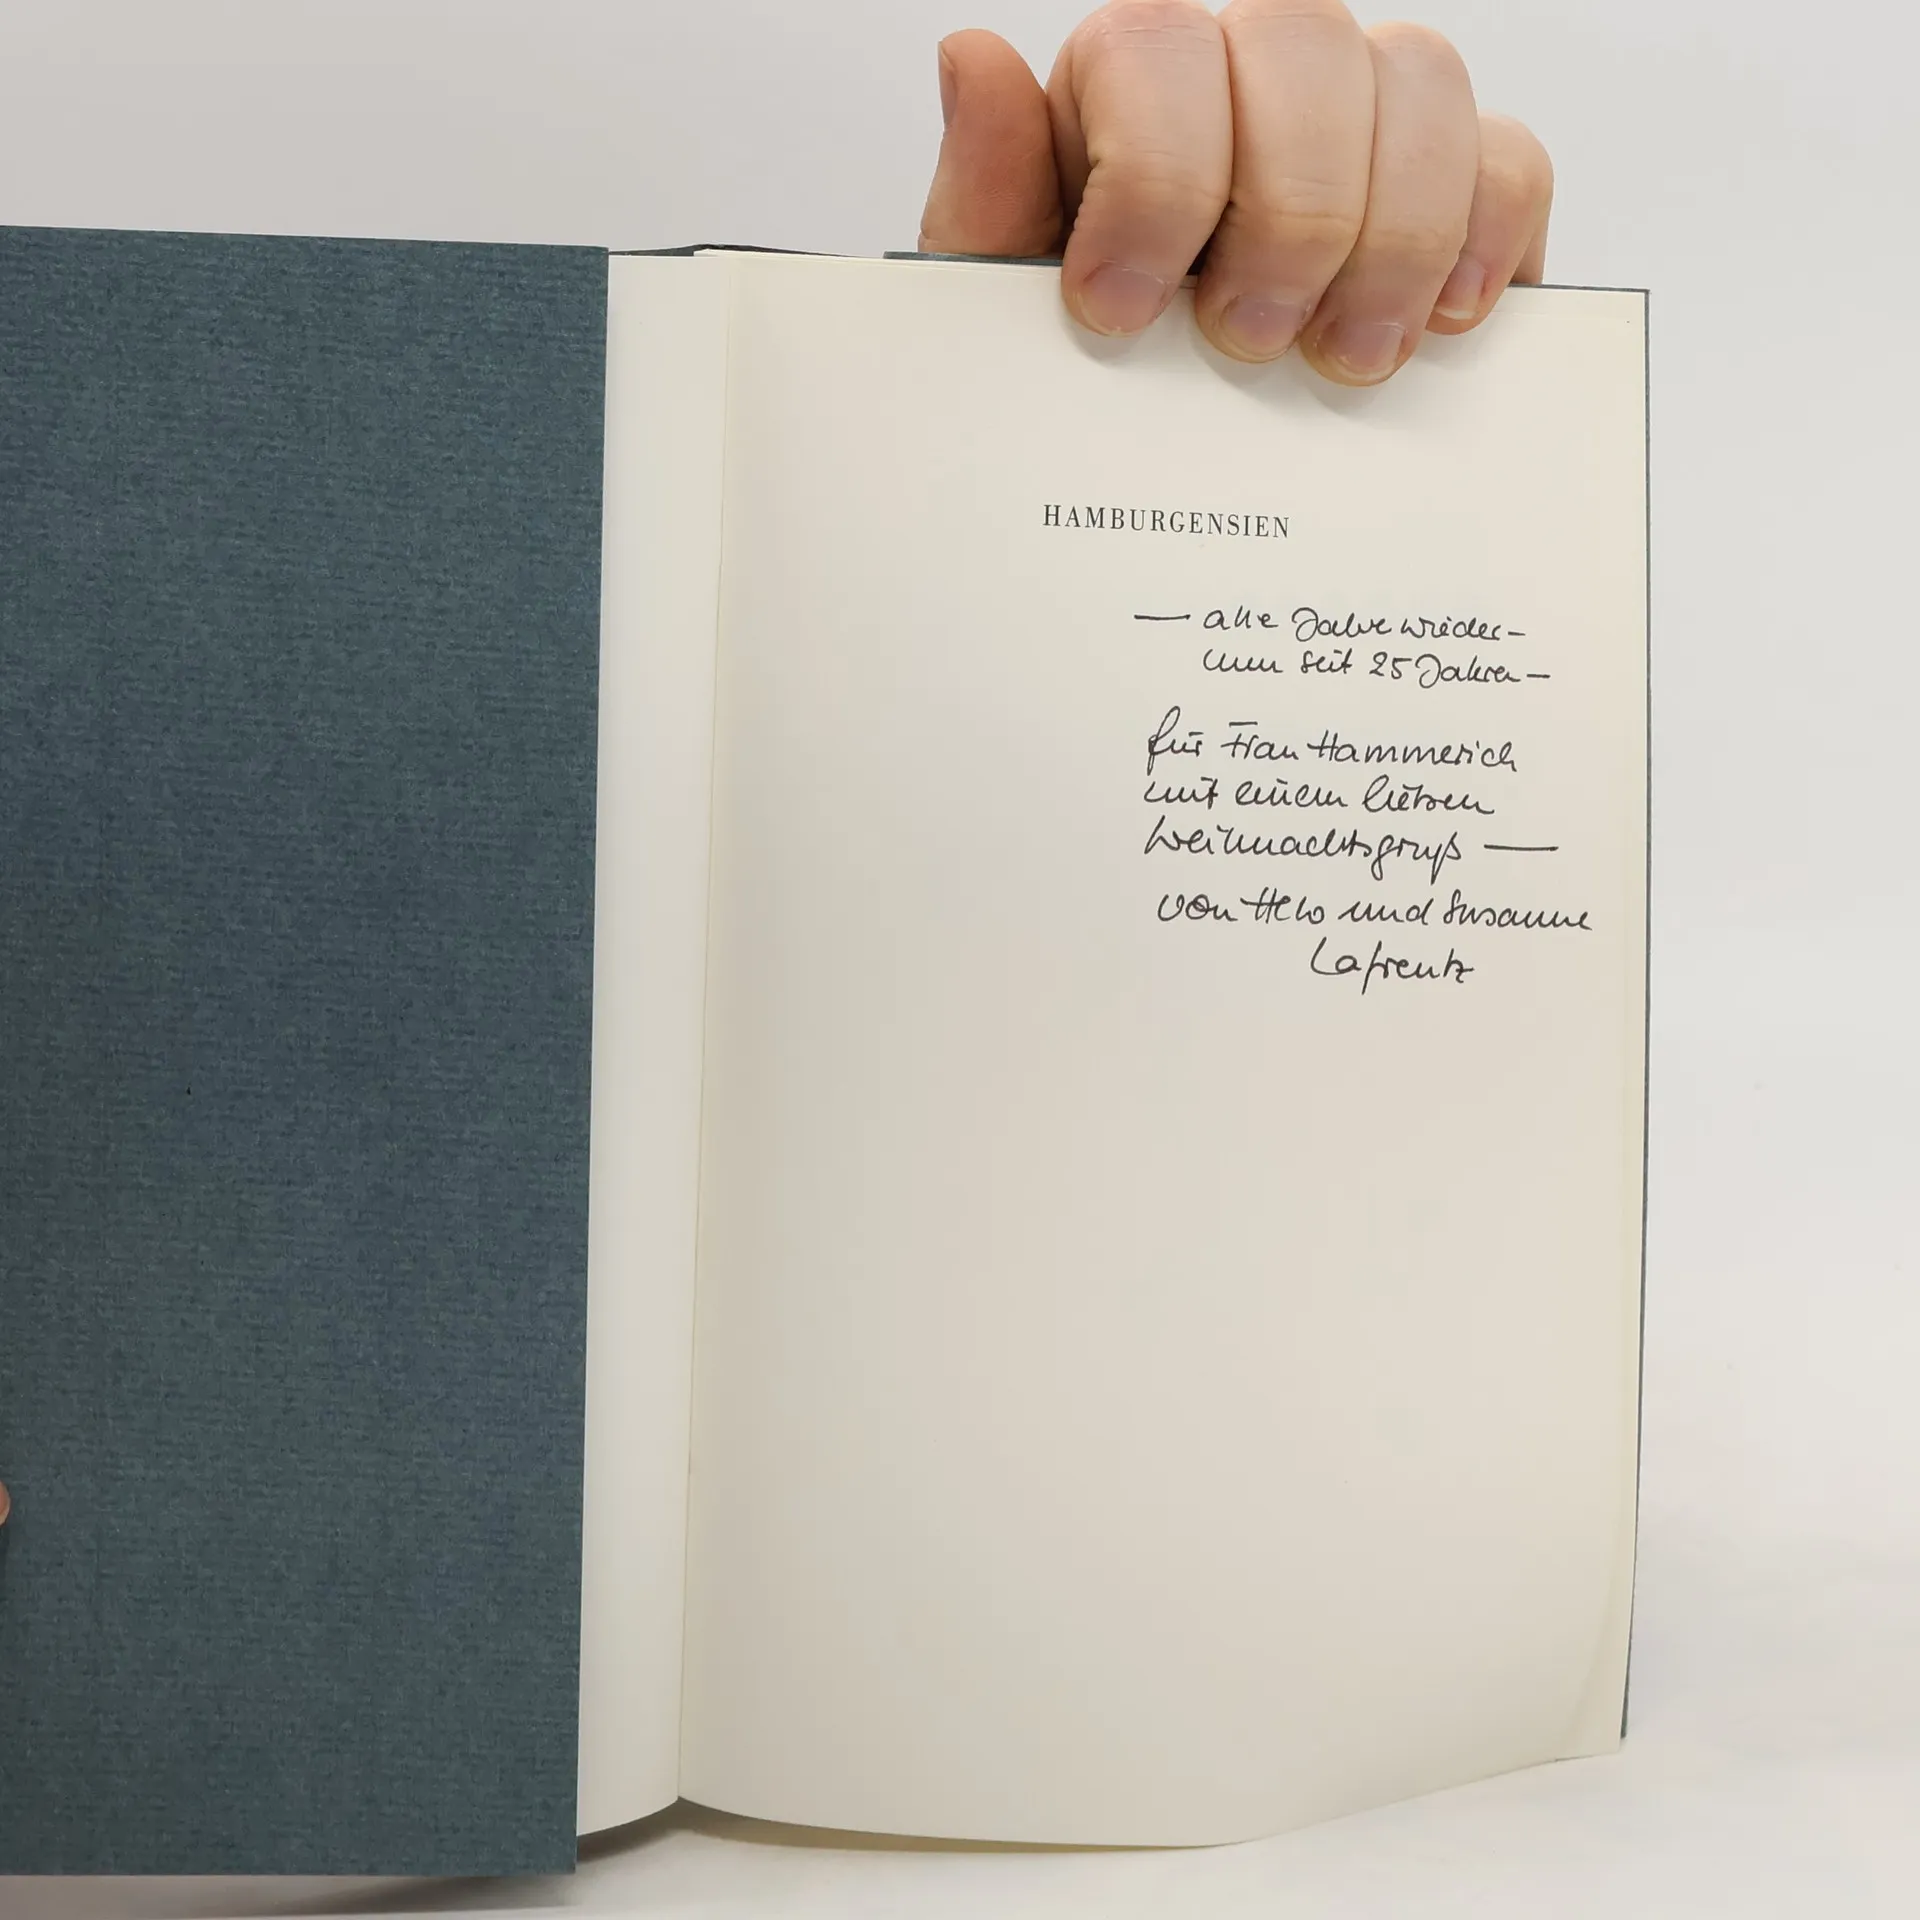 HAMBURGENSIEN
— alle Jahre wieder –
nun seit 25 Jahren —
für Frau Hammerich
mit einem lieben
Weihnachtsgruß —
von Helo und Susanne
Lafrentz